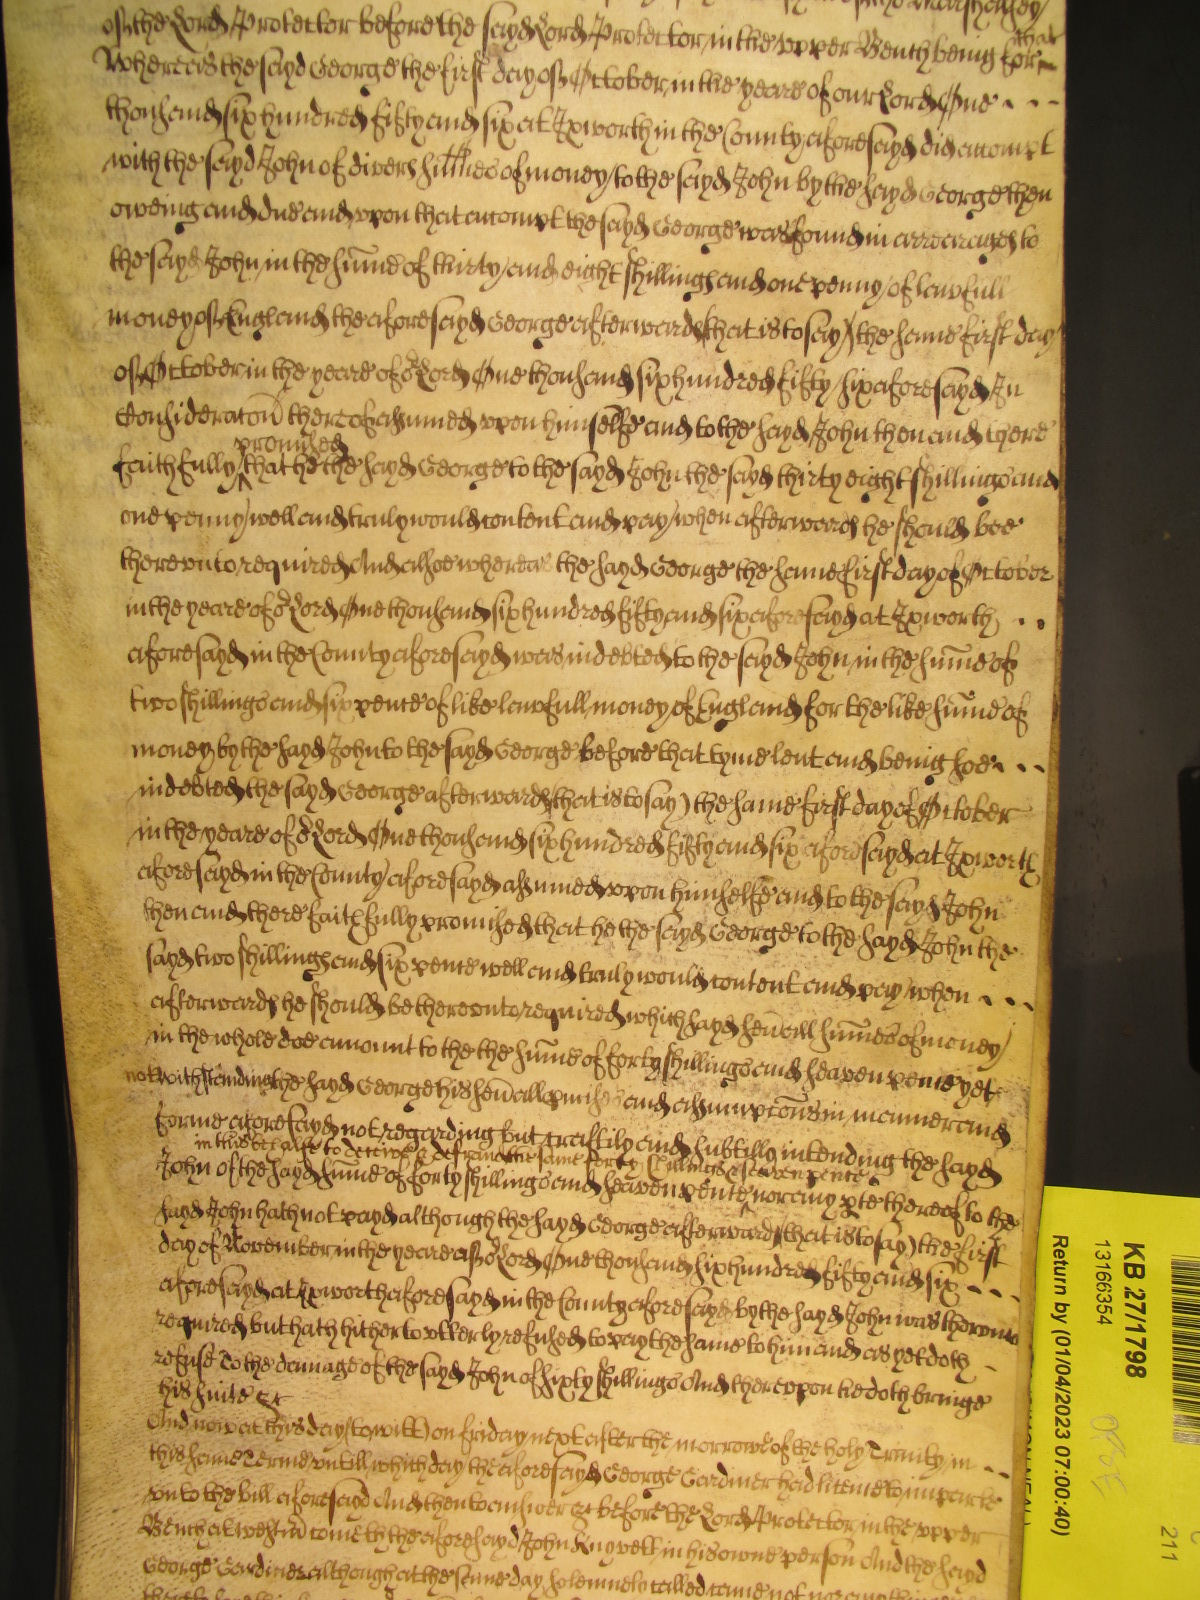 of the Marshalsey
of the Lord Protector before the sayd Lord Protector, in the vpper Bench being for
that
Whereas the sayd George the first day of October, in the yeare of our Lord One
thousand six hundred fifty and six at Ixworth in the County aforesayd did accompt
with the sayd John of divers sumes of money to the sayd John by the sayd George then
oweing and due and vpon that accompt the sayd George was found in arrearages to
the sayd John, in the sume of thirty and eight shillings and one penny of lawfull
money of England the aforesayd George afterwards (that is to say) the same first day
of October in the yeare of or Lord One thousand six hundred fifty six aforesayd In
Consideracon thereof assumed vpon himselfe and to the sayd John then and there
promised
faithfully that he the sayd George to the sayd John the sayd thirty eight shillings and
one penny well and truly would content and pay when afterwards he should bee
therevnto required And alsoe whereas the sayd George the same first day of October
in the yeare of or Lord One thousand six hundred fifty and six aforesayd at Ixworth
aforesayd in the County aforesayd was indebted to the sayd John, in the sume of
two shillings and six pence of like lawfull money of England for the like sume of
money by the sayd John to the sayd George before that tyme lent and being soe
indebted the sayd George afterwards (that is to say) the same first day of October
in the yeare of or Lord One thousand six hundred fifty and six aforesayd at Ixworth
aforesayd in the County aforesayd assumed vpon himselfe and to the sayd John
then and there faithfully promised that he the sayd George to the sayd John the
sayd two shillings and six pence well and truly would content and pay when
afterwards he should be therevnto required which sayd seuall sumes of money
in the whole doe amount to the the sume of forty shillings and seaven pence yet
notwithstanding the sayd George his seuall pmises and assumpcons in manner and
forme aforesayd not regarding but craftily and subtilly intending the sayd
in this behalfe to deceive & defraud the same forty shillings & seaven pence
John of the sayd sume of forty shillings and seaven pence nor any pte thereof to the
sayd John hath not payd although the sayd George afterwards (that is to say) the first
day of November, in the yeare of or Lord One thousand six hundred fifty and six
aforesayd at Ixworth aforesayd in the County aforesayd by the sayd John was therevnto
required but hath hitherto vtterly refused to pay the same to him and as yet doth
refuse To the damage of the sayd John of sixty shillings And therevpon he doth bringe
his suite &c
And now at this day (to witt) on friday next after the morrow of the holy Trinity in
this same Terme vntill which day the aforesayd George Gardiner had licence to imparle
vnto the bill aforesayd And then to answer &c before the Lord Protector, in the vpper
Bench at Westm cometh the aforesayd John in his owne person And the sayd
George Gardiner although at the same day solemnely called came not nor any thing
KB 27/1798
13166354
Return by (01/04/2023 07:00:40)
211